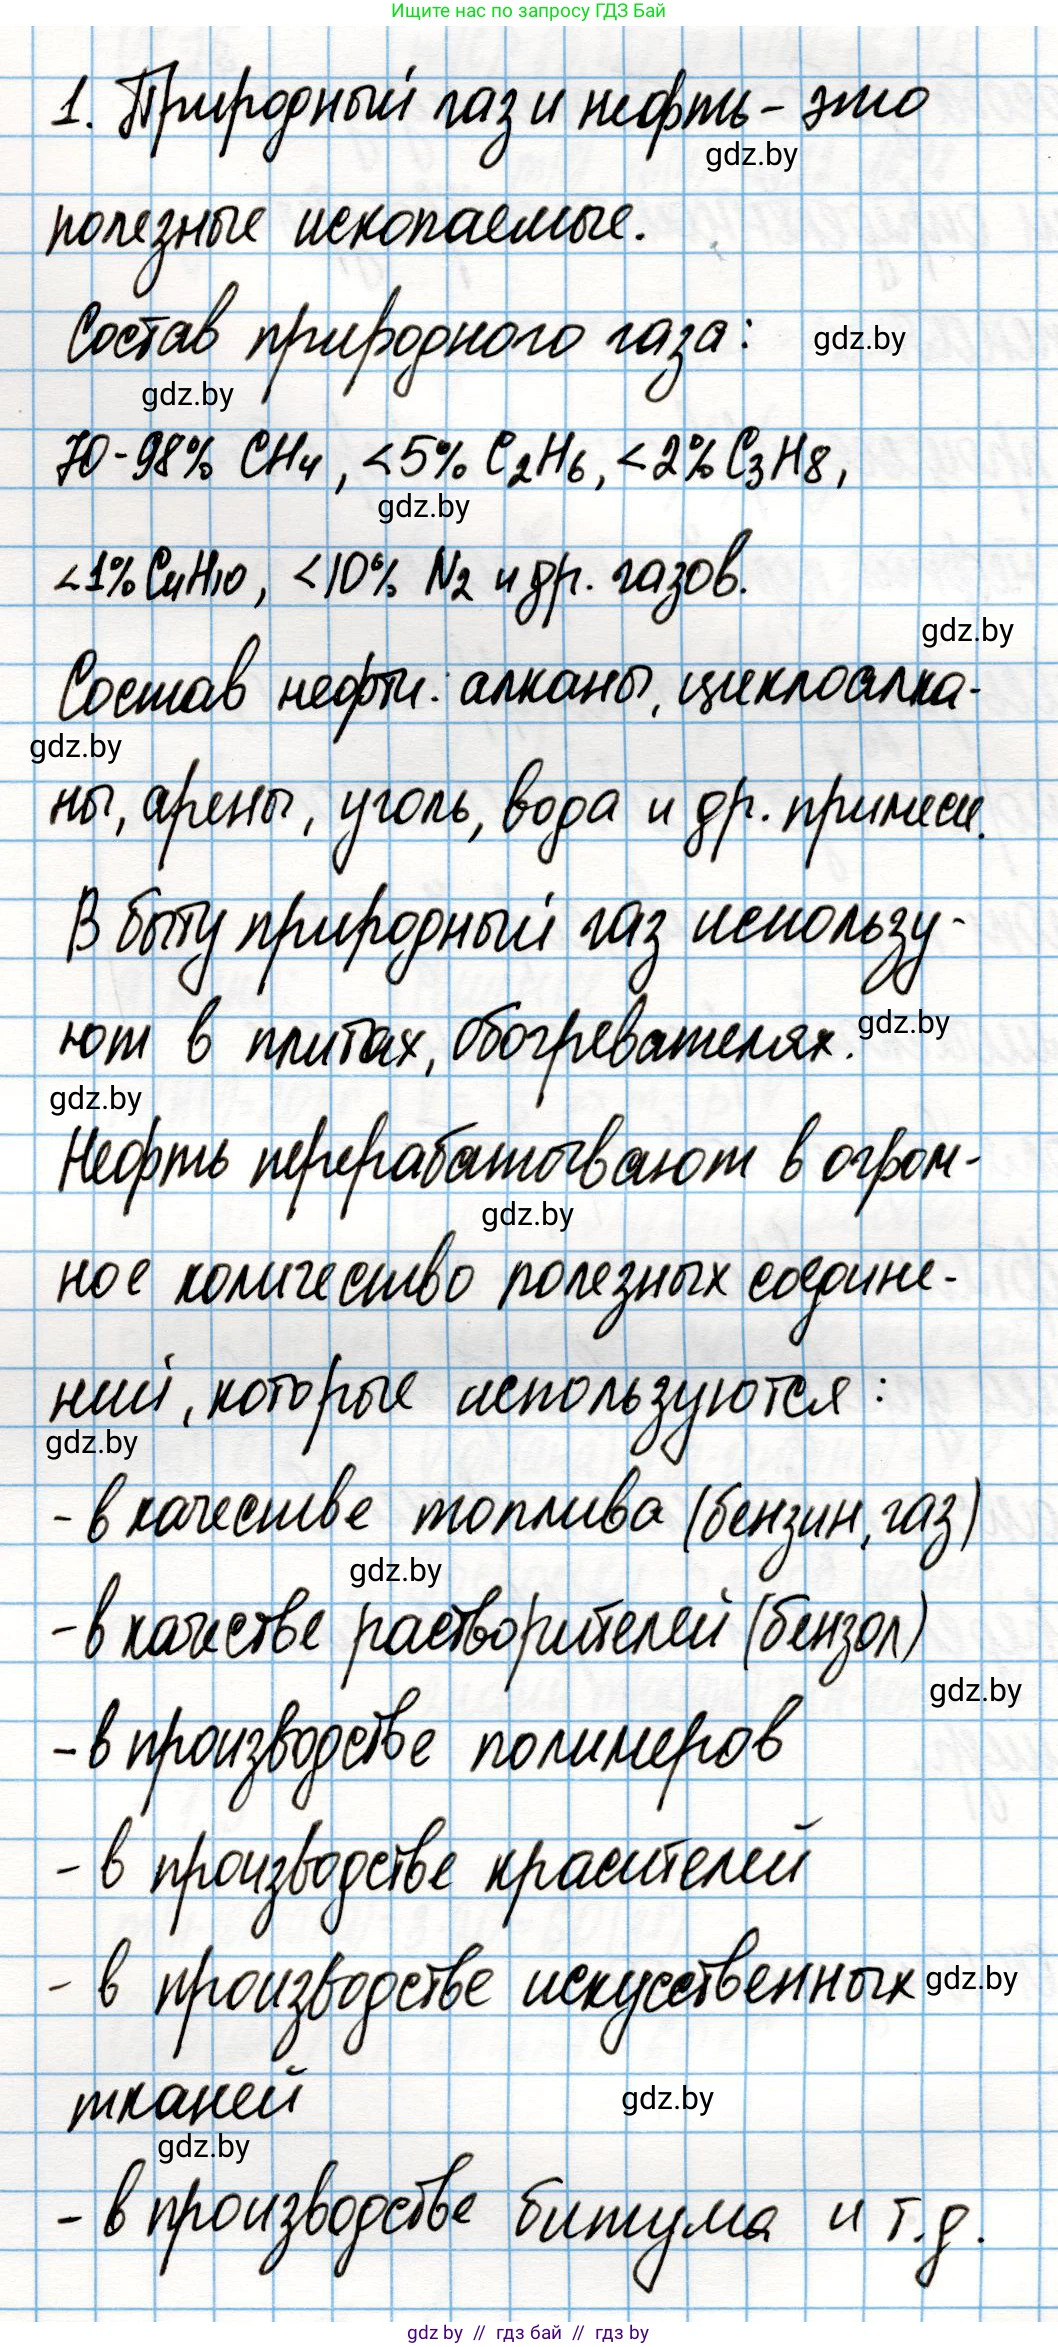 Ищите нас по запросу ГДЗ Бай
1. Природный газ и нефть – это
gdz.by
полезные ископаемые.
Состав природного газа:
gdz.by
gdz.by
70-98% CH4, <5% C2H6, <2% C3H8,
gdz.by
<1% C4H10, <10% N2 и др. газов.
gdz.by
Состав нефти: алканы, циклоалка-
gdz.by
ны, арены, уголь, вода и др. примеси.
В быту природный газ использу-
ют в плитах, обогревателях.
gdz.by
gdz.by
Нефть перерабатывают в огром-
gdz.by
ное количество полезных соедине-
ний, которые используются:
gdz.by
- в качестве топлива (бензин, газ)
gdz.by
- в качестве растворителей (бензол)
gdz.by
- в производстве полимеров
- в производстве красителей
- в производстве искусственных
gdz.by
тканей
gdz.by
gdz.by
- в производстве битума и т.д.
gdz by // гдз бай // гдз by